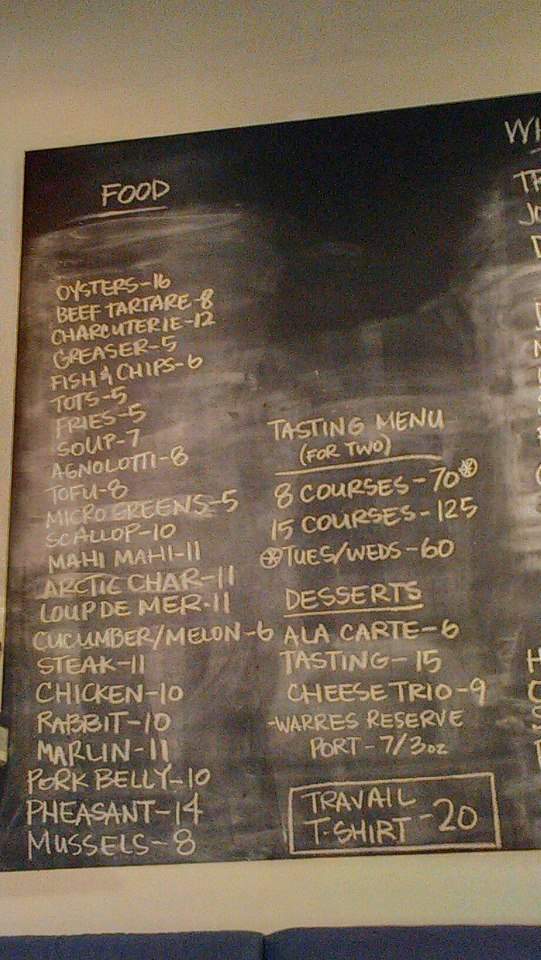 FOOD
OYSTERS-16
BEEF TARTARE-8
CHARCUTERIE-12
GREASER-5
FISH & CHIPS-6
TOTS-5
FRIES-5
SOUP-7
AGNOLOTTI-8
TOFU-8
MICRO GREENS-5
SCALLOP-10
MAHI MAHI-11
ARCTIC CHAR-11
LOUP DE MER-11
CUCUMBER/MELON-6
STEAK-11
CHICKEN-10
RABBIT-10
MARLIN-11
PORK BELLY-10
PHEASANT-14
MUSSELS-8
TASTING MENU
(FOR TWO)
8 COURSES-70*
15 COURSES-125
*TUES/WEDS-60
DESSERTS
ALA CARTE-6
TASTING-15
CHEESE TRIO-9
-WARRES RESERVE
PORT-7/3oz
TRAVAIL
T-SHIRT-20